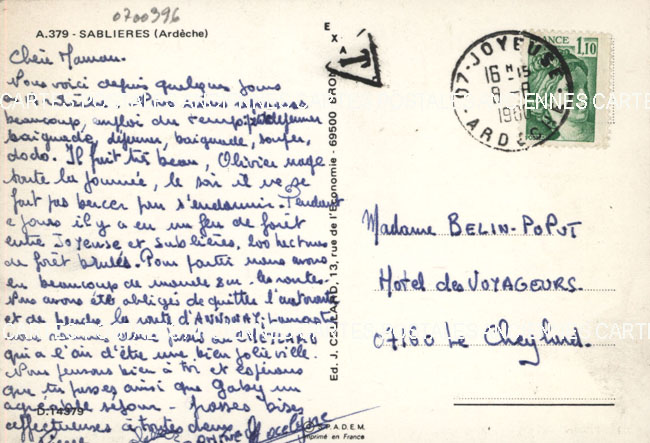 0700396
A.379 - SABLIERES (Ardèche)
EXA
T
FRANCE 1,10
07-JOYEUSE
16 H 15
8-8
1980
ARDECHE
Chère Maman.
Nous voici depuis quelques jours
beaucoup, emploi du temps: pt déjeuner
baignade, déjeuner, baignade, souper,
dodo. Il fait très beau, Olivier nage
toute la journée, le soir il ne se
fait pas bercer pour s'endormir. Pendant
2 jours il y a eu un feu de forêt
entre Joyeuse et Sablières, 200 hectares
de forêt brulés. Pour partir nous avons
eu beaucoup de monde sur les routes.
Nous avons été obligés de quitter l'autoroute
et de prendre la route d'ANNONAY-Lamastre
nous sommes passés au CHEYLARD
qui a l'air d'être une bien jolie ville.
Nous pensons bien à toi et espérons
que tu passes ainsi que Gaby un
agréable séjour - grosses bises
affectueuses à toutes deux.
Jocelyne
D.14379
Ed. J. CELLARD, 13, rue de l'Economie - 69500 BRON
S.P.A.D.E.M.
Imprimé en France
Madame BELIN-POPUT
Hôtel des VOYAGEURS.
07160 Le Cheylard.
CARTES POSTALES ANCIENNES